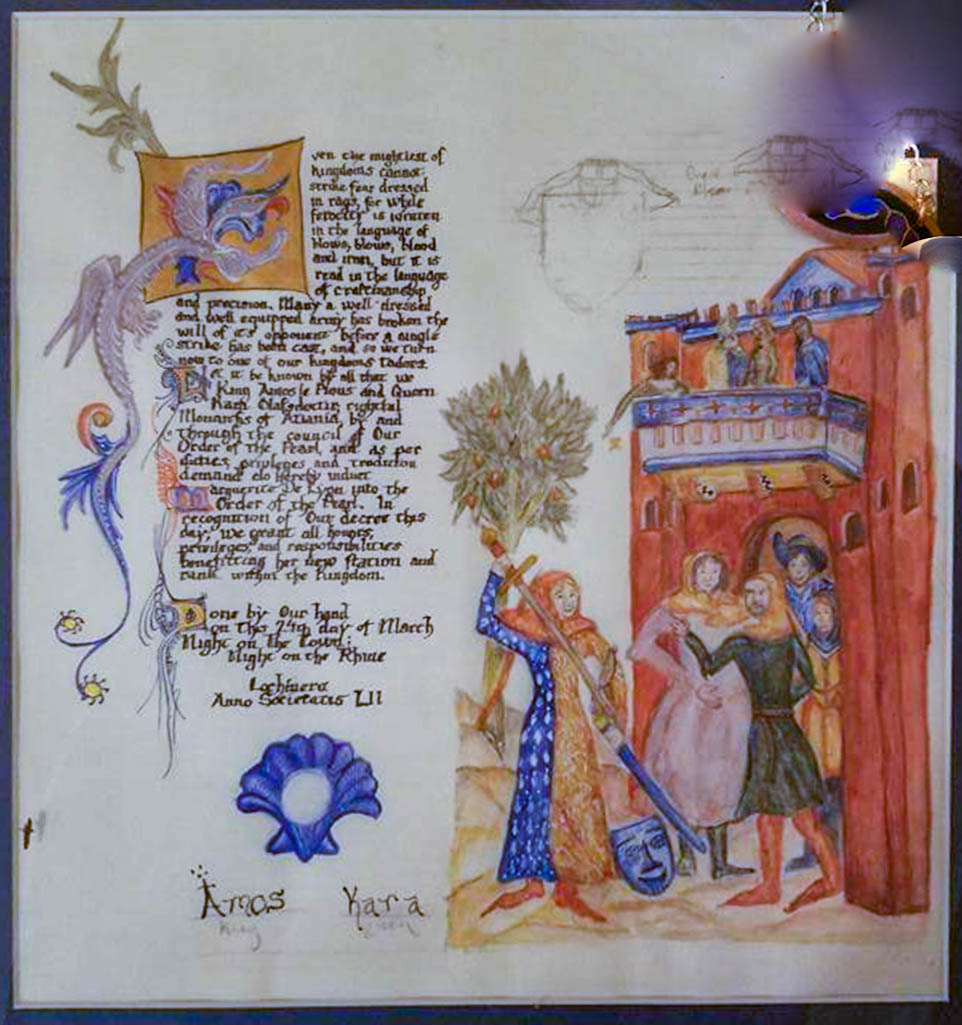 ven the mightiest of
kingdoms cannot
strike fear dressed
in rags, for while
ferocity is written
in the language of
blows, blows, blood
and iron, but it is
read in the language
of craftmanship
and precision. Many a well dressed
and well equipped army has broken the
will of it's opponent before a single
strike has been cast, and so we turn
now to one of our kingdoms
et it be known by all that we
King Amos le Pious and Queen
Kara rightful
Monarchs of Atlantia by and
through the council of Our
Order of the Pearl, and as per
duties, privileges and tradition
demand do hereby induct
Marguerite De Lyon into the
Order of the Pearl. In
recognition of Our decree this
day, we grant all honors,
privileges, and responsibilities
benefitting her new station and
rank within the Kingdom.
Done by Our hand
on this 24th day of March
Night on the Town:
Night on the Rhine
Anno Societatis LII
Amos Kara
King